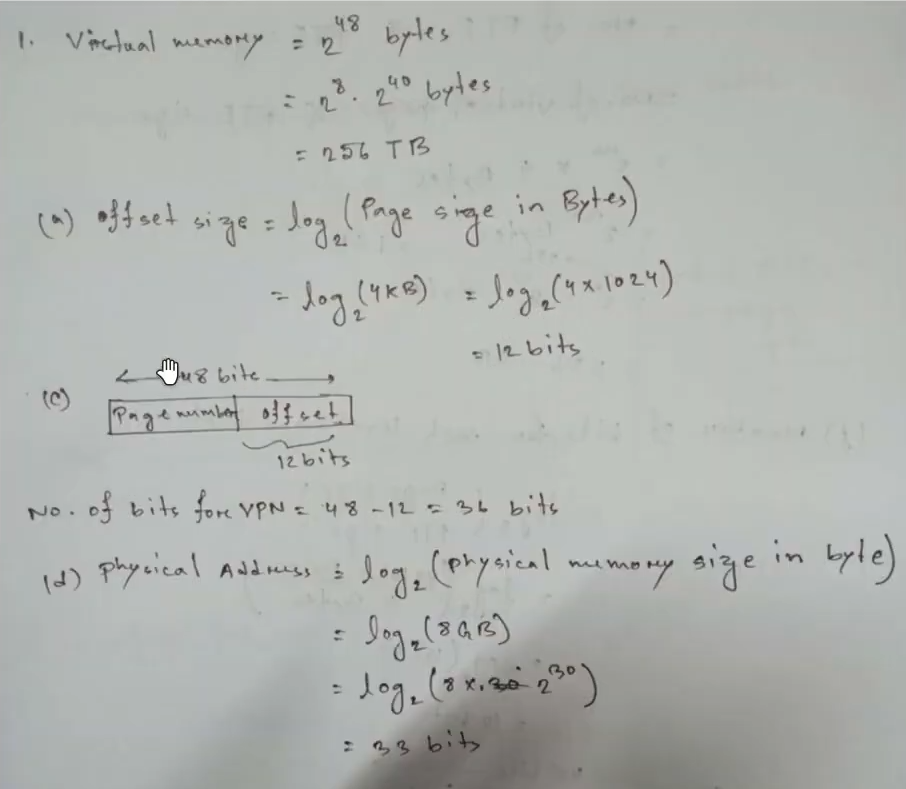 1. Virtual memory = 2^48 bytes
= 2^8 . 2^40 bytes
= 256 TB
(a) offset size = log_2 (Page size in Bytes)
= log_2 (4KB) = log_2 (4 x 1024)
= 12 bits
(c) 48 bits
Page number offset
12 bits
No. of bits fore VPN = 48 - 12 = 36 bits
(d) Physical Address = log_2 (physical memory size in byte)
= log_2 (8GB)
= log_2 (8 x 2^30)
= 33 bits